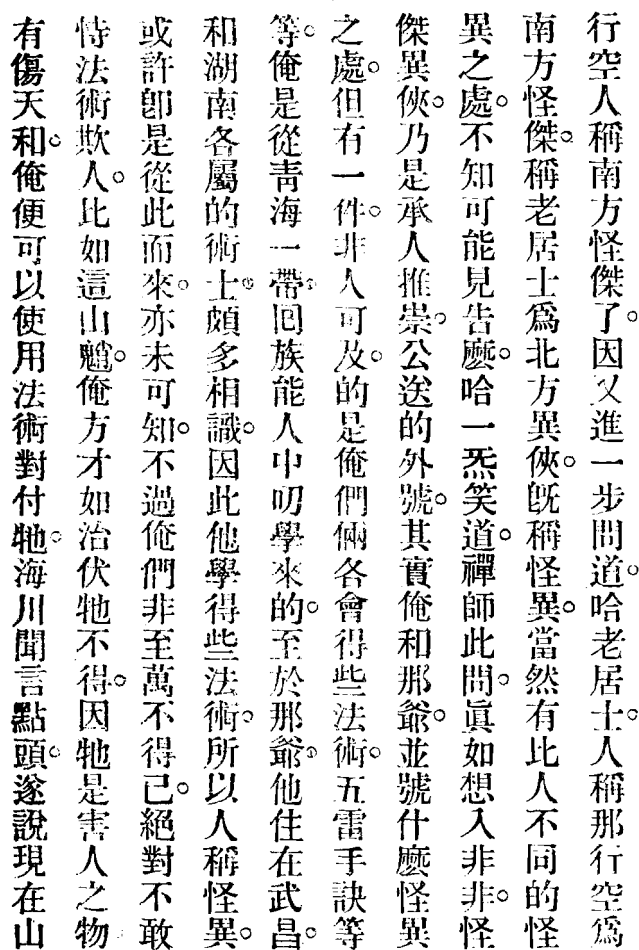 行空人稱南方怪傑了。因又進一步問道。哈老居士。人稱那行空爲
南方怪傑。稱老居士爲北方異俠。旣稱怪異。當然有比人不同的怪
異之處。不知可能見告麽。哈一炁笑道。禪師此問。眞如想入非非。怪
傑異俠。乃是承人推崇。公送的外號。其實俺和那爺。並號什麽怪異
之處。但有一件。非人可及。的是俺們倆各會得些法術。五雷手訣等
等。俺是從靑海一帶。回族能人中叨學來的。至於那爺。他住在武昌。
和湖南各屬的術士。頗多相識。因此他學得些法術。所以人稱怪異。
或許卽是從此而來。亦未可知。不過俺們非至萬不得已。絕對不敢
恃法術欺人。比如這山魈。俺方才如治伏牠不得。因牠是害人之物
有傷天和。俺便可以使用法術對付牠。海川聞言點頭。遂說現在山